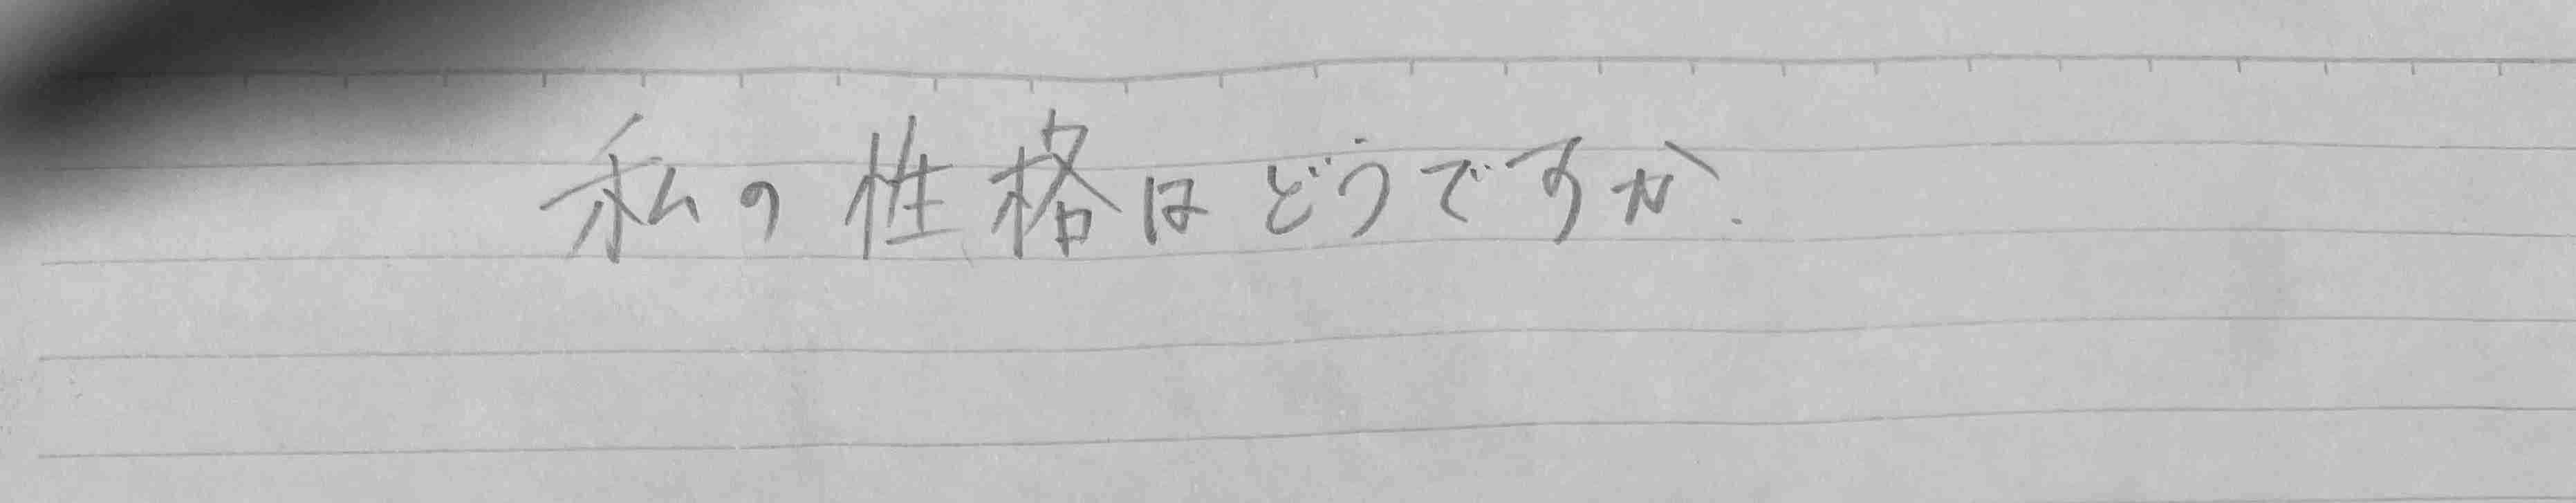 私の性格はどうですか.